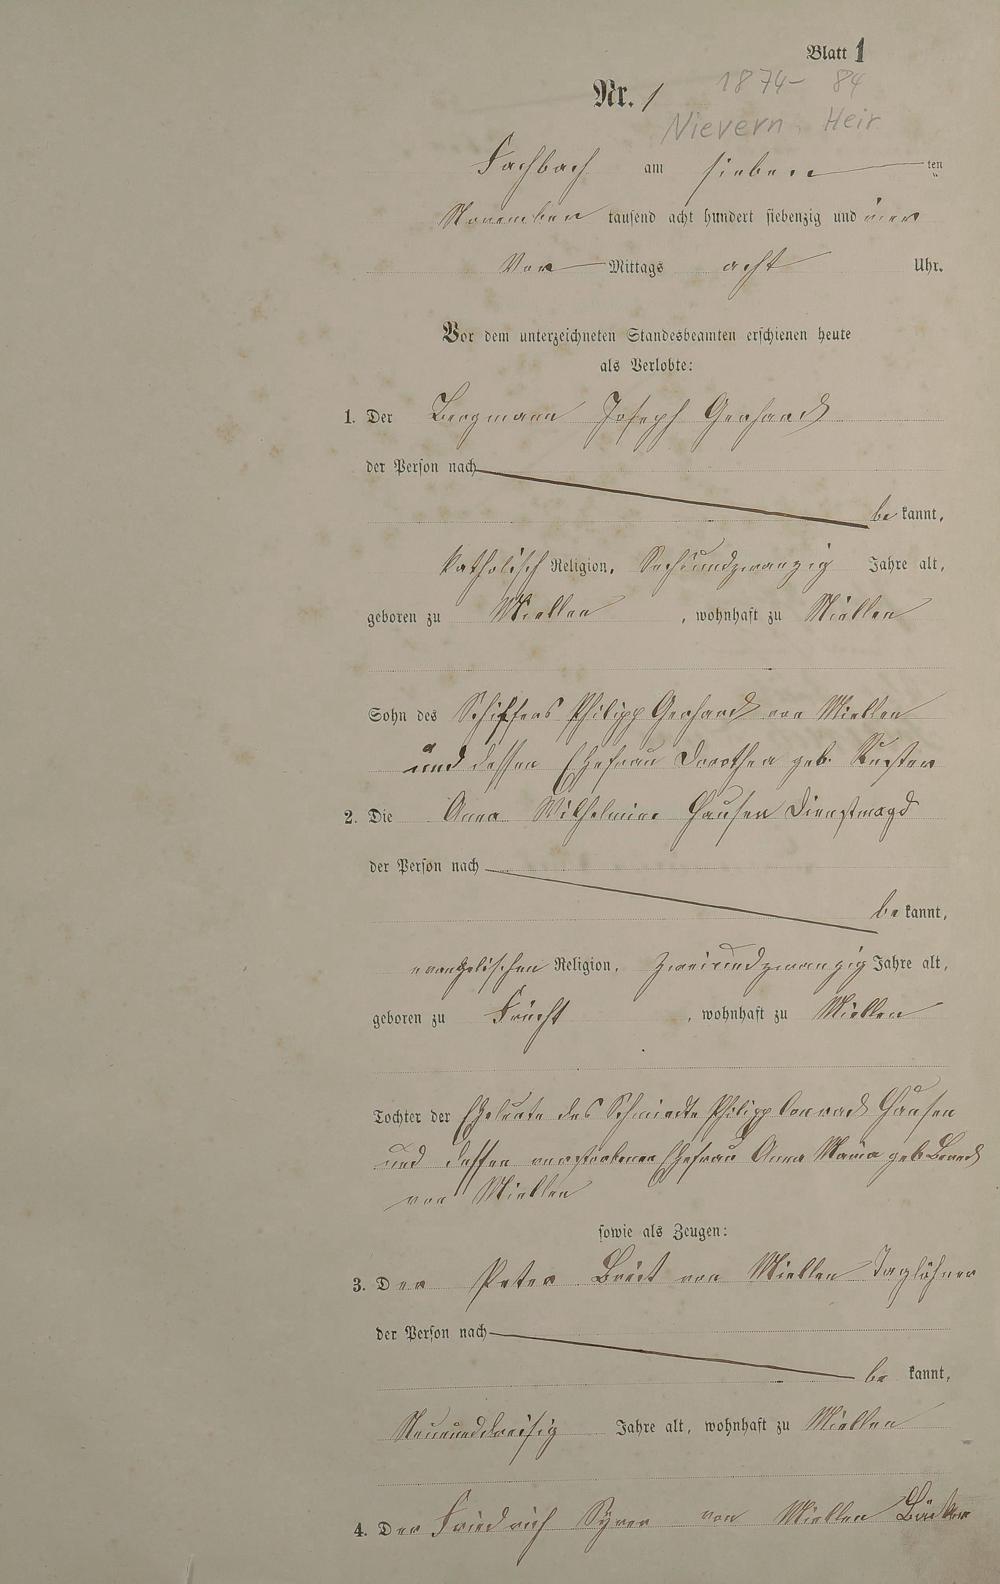 Blatt 1
1874-84
Nr. 1
Nievern Heir
Fachbach am sieben ten
November tausend acht hundert siebenzig und vier
Vor Mittags acht Uhr.
Vor dem unterzeichneten Standesbeamten erschienen heute
als Verlobte:
1. Der Bergmann Joseph Gerhard
der Person nach
be kannt,
katholisch Religion, Sechsundzwanzig Jahre alt,
geboren zu Miellen, wohnhaft zu Miellen
Sohn des Schiffers Philipp Gerhard von Miellen
und dessen Ehefrau Dorothea geb.
2. Die Anna Wilhelmine Hausen Dienstmagd
der Person nach
be kannt,
evangelischen Religion, zweiundzwanzig Jahre alt,
geboren zu Frücht, wohnhaft zu Miellen
Tochter der Eheleute des Schmiedts Philipp Conrad Hausen
und dessen verstorbenen Ehefrau Anna Maria geb.
von Miellen
sowie als Zeugen:
3. Der Peter von Miellen Taglöhner
der Person nach
be kannt,
Neununddreisig Jahre alt, wohnhaft zu Miellen
4. Der Friedrich von Miellen